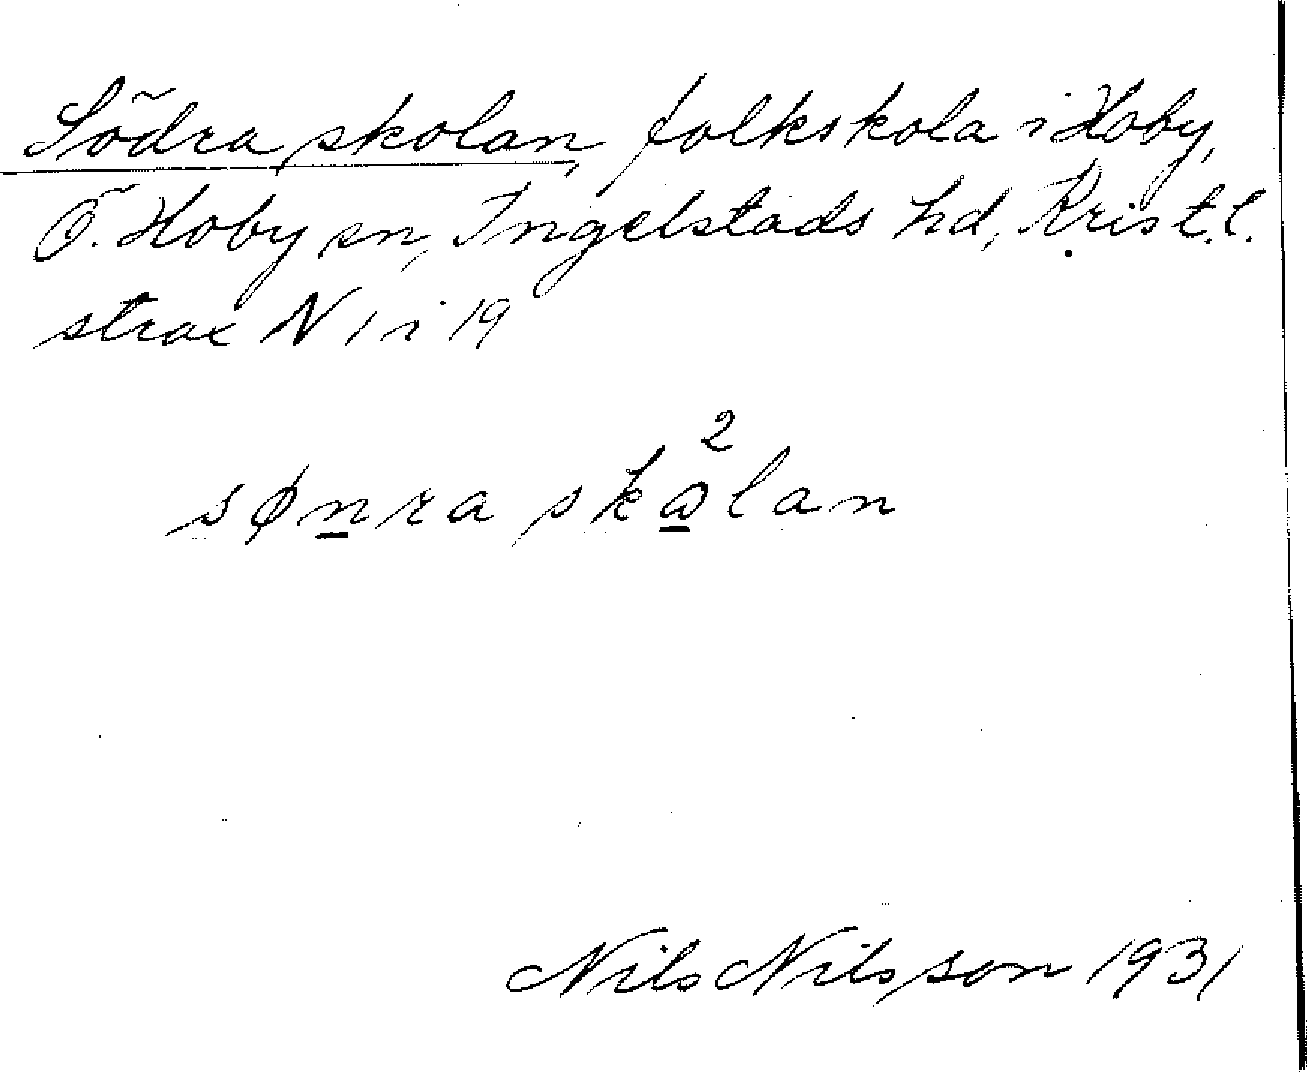 Södra skolan, folkskola i Hoby,
Ö. Hoby sn, Ingelstads hd, Krist. l.
strax N 1 i 19
2
sønra skålan
Nils Nilsson 1931